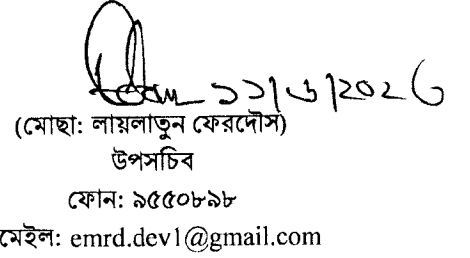 ১১/৬/২০২৬
(মোছা: লায়লাতুন ফেরদৌস)
উপসচিব
ফোন: ৯৫৫০৮৯৮
মেইল: emrd.dev1@gmail.com